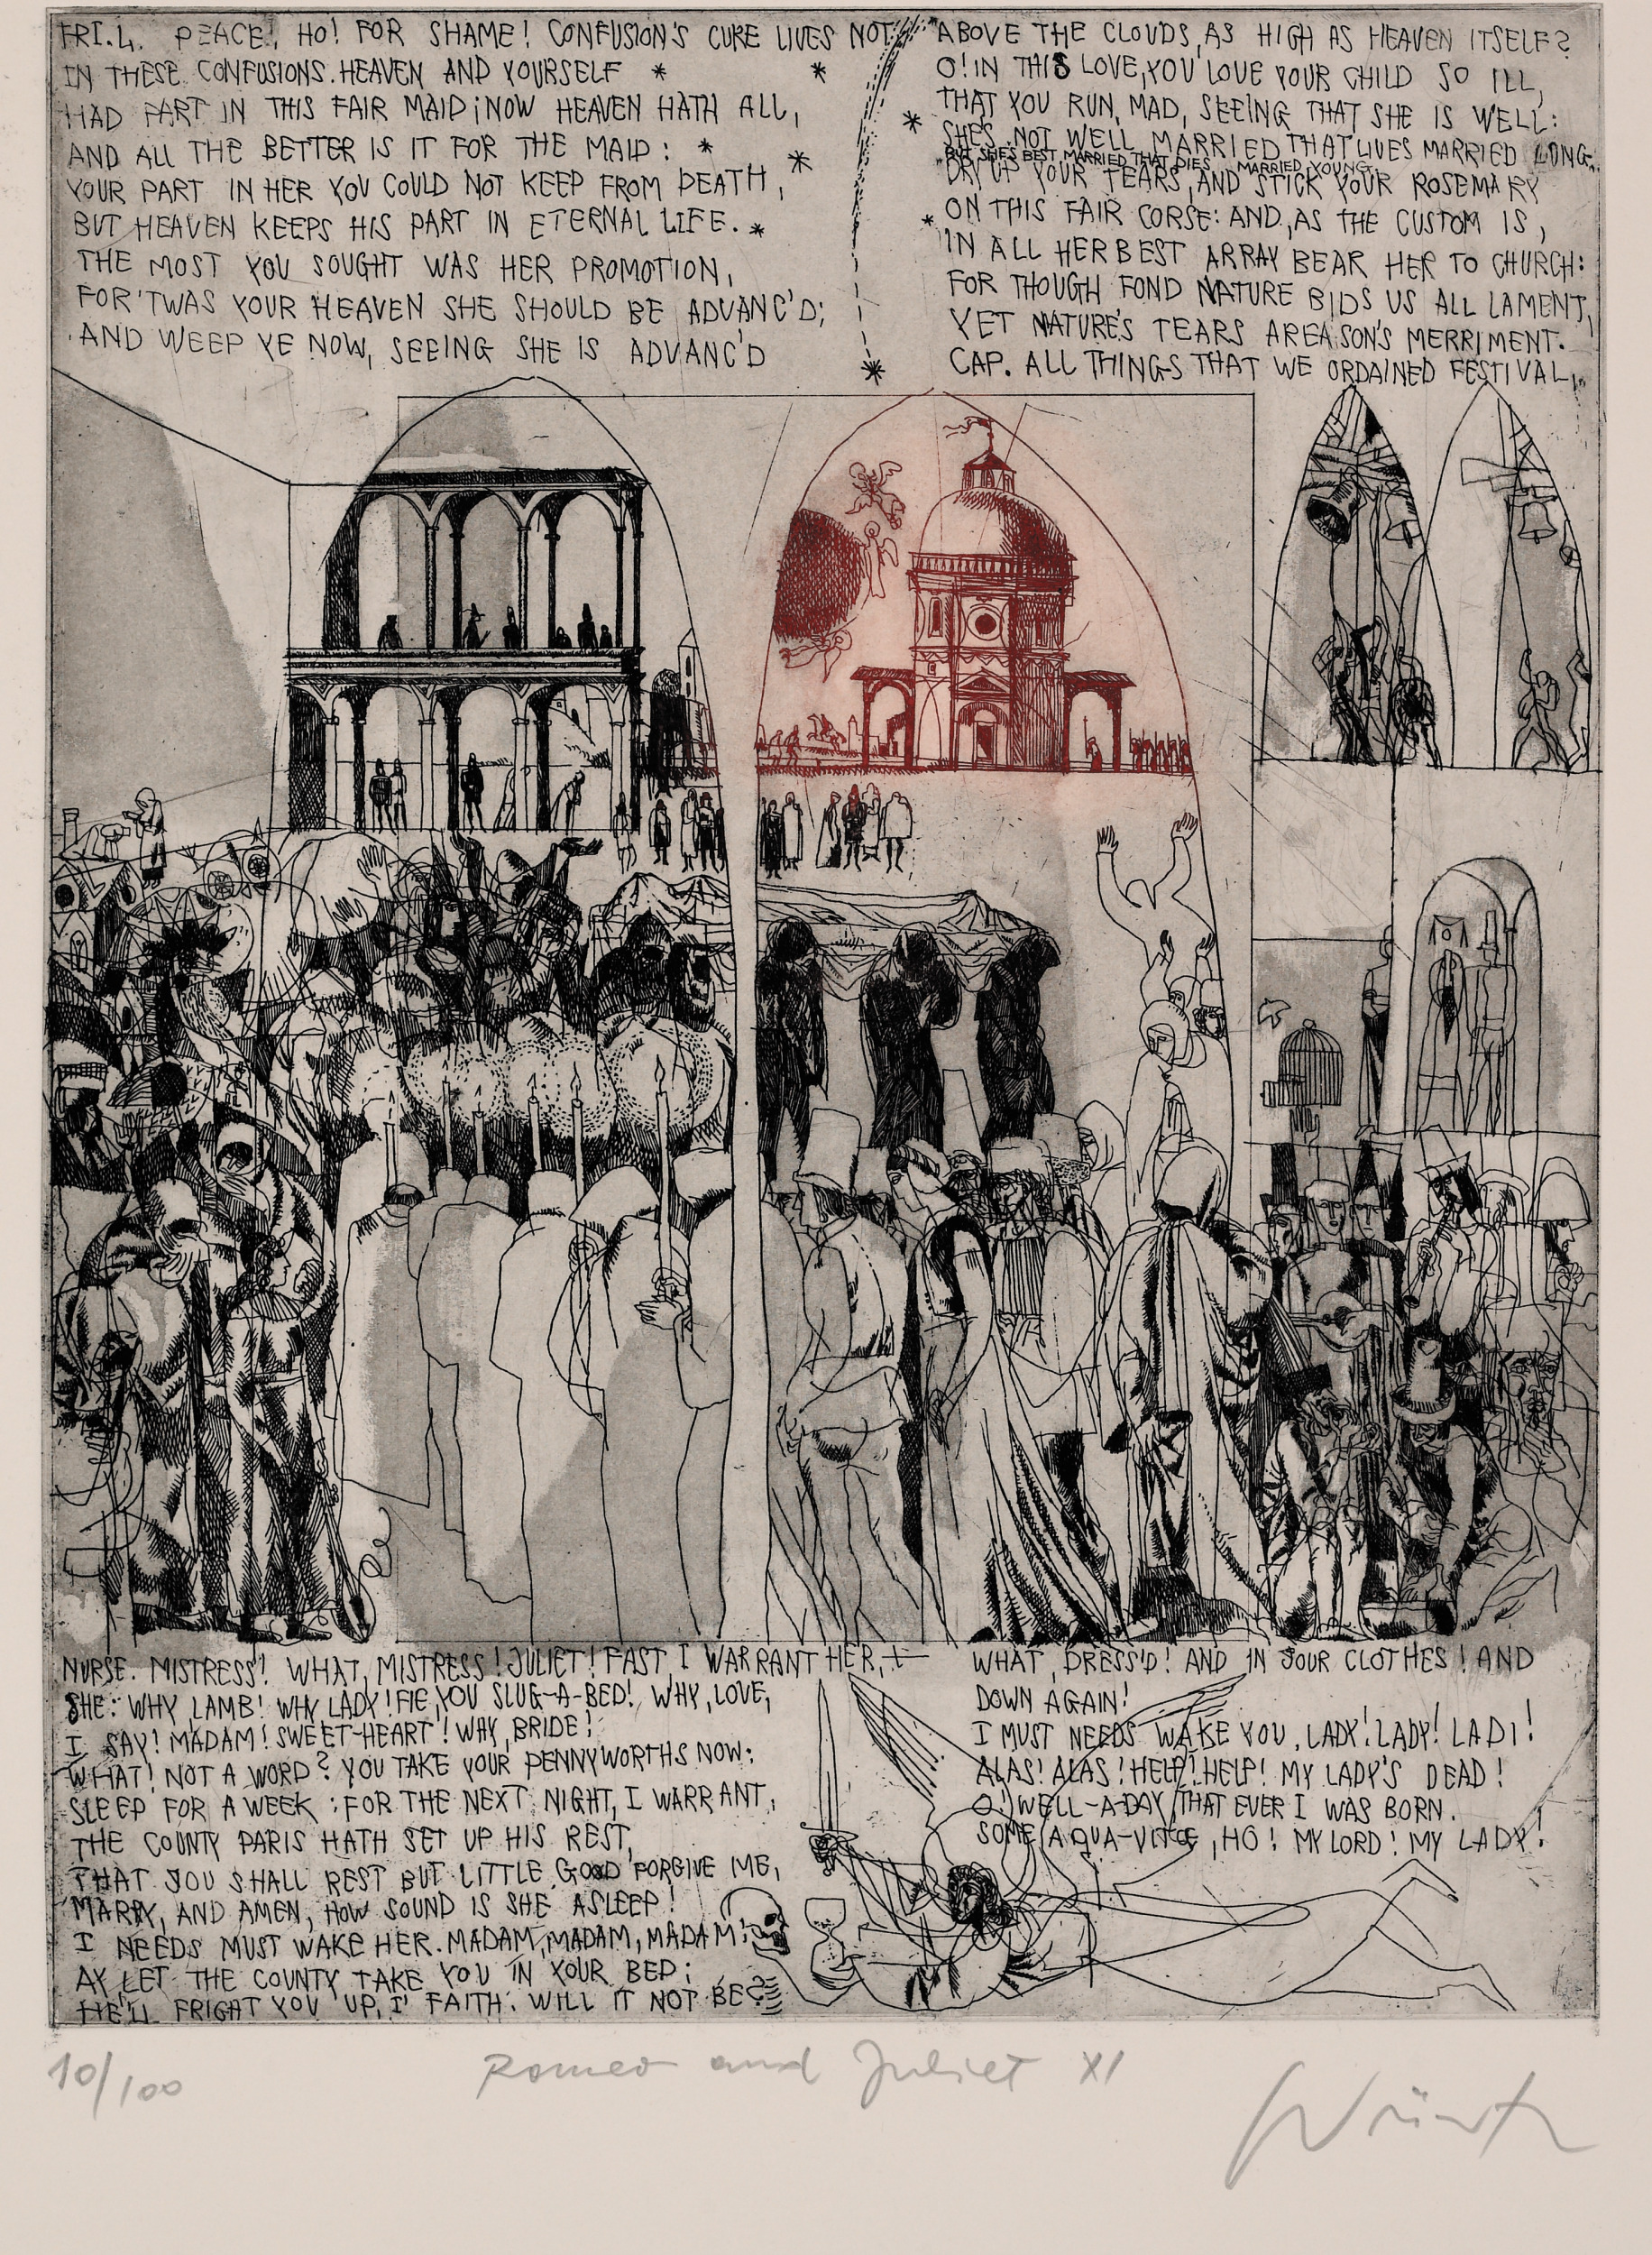 FRI.L. PEACE! HO! FOR SHAME! CONFUSION'S CURE LIVES NOT
IN THESE CONFUSIONS. HEAVEN AND YOURSELF
HAD PART IN THIS FAIR MAID; NOW HEAVEN HATH ALL,
AND ALL THE BETTER IS IT FOR THE MAID:
YOUR PART IN HER YOU COULD NOT KEEP FROM DEATH,
BUT HEAVEN KEEPS HIS PART IN ETERNAL LIFE.
THE MOST YOU SOUGHT WAS HER PROMOTION,
FOR 'TWAS YOUR HEAVEN SHE SHOULD BE ADVANC'D;
AND WEEP YE NOW, SEEING SHE IS ADVANC'D
ABOVE THE CLOUDS, AS HIGH AS HEAVEN ITSELF?
O! IN THIS LOVE, YOU LOVE YOUR CHILD SO ILL,
THAT YOU RUN, MAD, SEEING THAT SHE IS WELL:
SHE'S NOT WELL MARRIED THAT LIVES MARRIED LONG.
BUT SHE'S BEST MARRIED THAT DIES MARRIED YOUNG.
DRY UP YOUR TEARS, AND STICK YOUR ROSEMARY
ON THIS FAIR CORSE: AND, AS THE CUSTOM IS,
IN ALL HER BEST ARRAY BEAR HER TO CHURCH:
FOR THOUGH FOND NATURE BIDS US ALL LAMENT,
YET NATURE'S TEARS ARE ASON'S MERRIMENT.
CAP. ALL THINGS THAT WE ORDAINED FESTIVAL,
NURSE. MISTRESS! WHAT, MISTRESS! JULIET! FAST, I WARRANT HER,
SHE: WHY LAMB! WHY LADY! FIE, YOU SLUG-A-BED! WHY, LOVE,
I SAY! MADAM! SWEET-HEART! WHY, BRIDE!
WHAT! NOT A WORD? YOU TAKE YOUR PENNYWORTHS NOW:
SLEEP FOR A WEEK; FOR THE NEXT NIGHT, I WARRANT,
THE COUNTY PARIS HATH SET UP HIS REST,
THAT YOU SHALL REST BUT LITTLE. GOD FORGIVE ME,
MARRY, AND AMEN, HOW SOUND IS SHE ASLEEP!
I NEEDS MUST WAKE HER. MADAM, MADAM, MADAM!
AY LET THE COUNTY TAKE YOU IN YOUR BED;
HE'LL FRIGHT YOU UP, I' FAITH. WILL IT NOT BE?
WHAT, DRESS'D! AND IN YOUR CLOTHES! AND
DOWN AGAIN!
I MUST NEEDS WAKE YOU, LADY! LADY! LADI!
ALAS! ALAS! HELP! HELP! MY LADY'S DEAD!
O! WELL-A-DAY, THAT EVER I WAS BORN.
SOME AQUA-VITAE, HO! MY LORD! MY LADY!
10/100
Romeo and Juliet XI